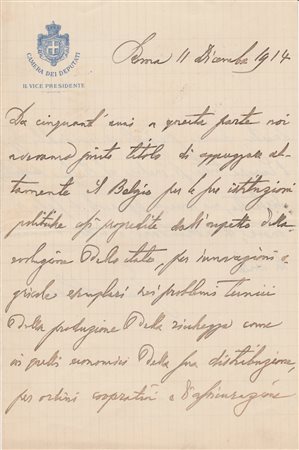 CAMERA DEI DEPUTATI
IL VICE PRESIDENTE
Roma 11 Dicembre 1914
Da cinquant'anni a questa parte noi
titolo di
tamente il Belgio per le sue istituzioni
politiche dall'aspetto della
evoluzione dello stato, per innovazioni a
gricole esemplari nei problemi tecnici
della produzione della ricchezza come
in quelli economici della sua distribuzione,
per ordini cooperativi e d'assicurazione